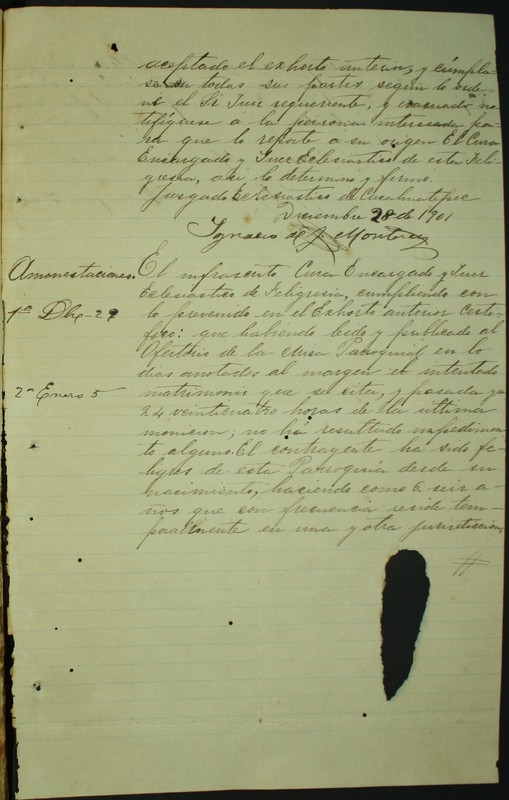 aceptado el exhorto anterior, y cúmpla-
se en todas sus partes segun lo orde-
na el Sr Juez requerente, y evacuado no-
tifíquese a la persona interesada pa-
ra que lo reporte a su origen El Cura
Encargado y Juez Eclesiástico de esta Feli-
gresia, asi lo determinó y firmó.
Juzgado Eclesiastico de Cacahuatepec
Diciembre 28 de 1901
Ignacio de J. Montero
Amonestaciones.
El infrascrito Cura Encargado y Juez
Eclesiastico de Feligresia, cumpliendo con
1ra Dbe-29
lo prevenido en el Exhorto anterior Certi-
fico: que habiendo leido y publicado al
Ofertorio de la Misa Parroquial en lo
dias anotados al margen el intentado
2a Enero 5
matrimonio que se cita, y pasada ya
24 veinticuatro horas de la última
monicion; no ha resultado impedimen-
to alguno. El contrayente ha sido fe-
ligres de esta Parroquia desde su
nacimiento, haciendo como 6 seis a-
ños que con frecuencia reside tem-
poralmente en una y otra jurisdiccion,